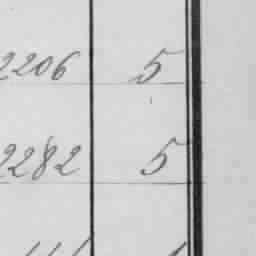 2206 5
2282 5